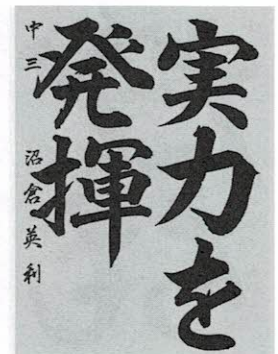 実力を
発揮
中三 沼倉英利